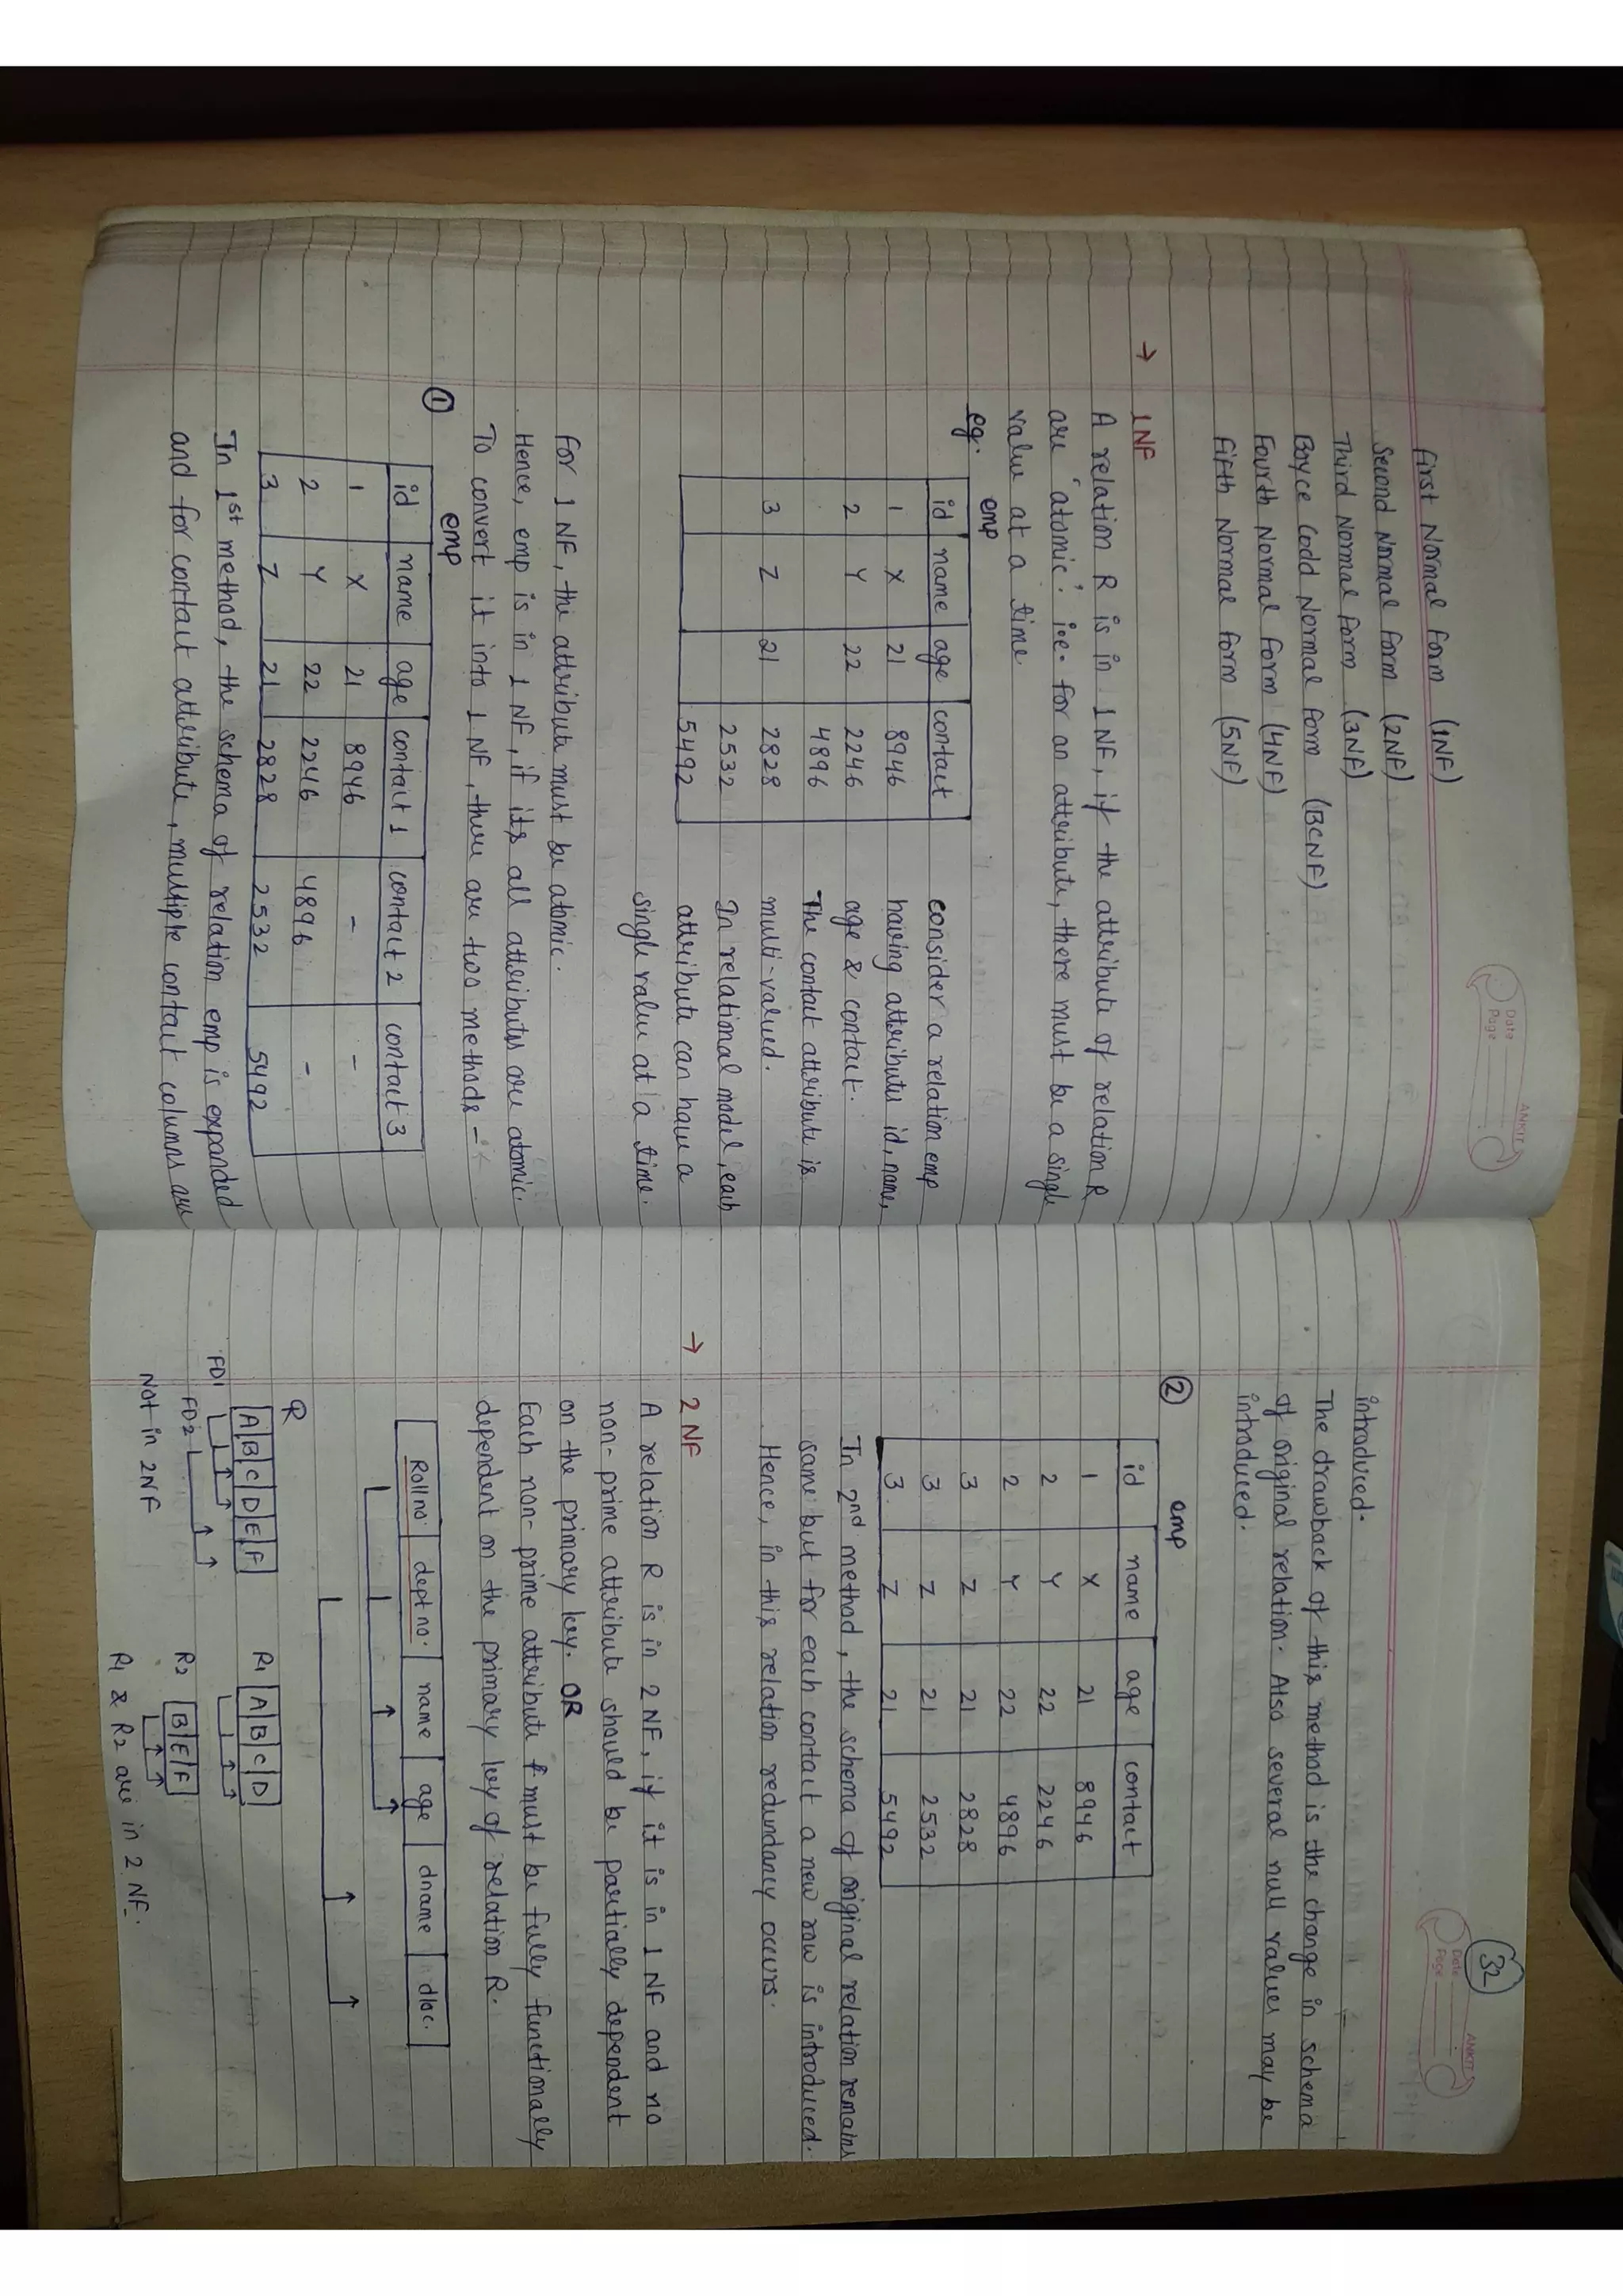 Date
Page
ANKIT
First Normal Form (1NF)
Second Normal Form (2NF)
Third Normal Form (3NF)
Boyce Codd Normal Form (BCNF)
Fourth Normal Form (4NF)
Fifth Normal Form (5NF)
→ 1NF
A relation R is in 1NF, if the attribute of relation R
are 'atomic'. i.e. for an attribute, there must be a single
value at a time
eg. emp
id name age contact
1 X 21 8946
2 Y 22 2246
4896
3 Z 21 2828
2532
5492
consider a relation emp
having attributes id, name,
age & contact.
The contact attribute is
multi-valued.
In relational model, each
attribute can have a
single value at a time.
For 1NF, the attribute must be atomic.
Hence, emp is in 1NF, if its all attributes are atomic.
To convert it into 1NF, there are two methods -
① emp
id name age contact 1 contact 2 contact 3
1 X 21 8946 - -
2 Y 22 2246 4896 -
3 Z 21 2828 2532 5492
In 1st method, the schema of relation emp is expanded
and for contact attribute, multiple contact columns are
32
Date
Page
ANKIT
introduced.
The drawback of this method is the change in schema
of original relation. Also several null values may be
introduced.
② emp
id name age contact
1 X 21 8946
2 Y 22 2246
2 Y 22 4896
3 Z 21 2828
3 Z 21 2532
3 Z 21 5492
In 2nd method, the schema of original relation remains
same but for each contact a new row is introduced.
Hence, in this relation redundancy occurs.
→ 2NF
A relation R is in 2NF, if it is in 1NF and no
non-prime attribute should be partially dependent
on the primary key. OR
Each non-prime attribute must be fully functionally
dependent on the primary key of relation R.
Roll no. dept no. name age dname dloc.
R
A B C D E F
FD1
FD2
Not in 2NF
R1 A B C D
R2 B E F
R1 & R2 are in 2NF.